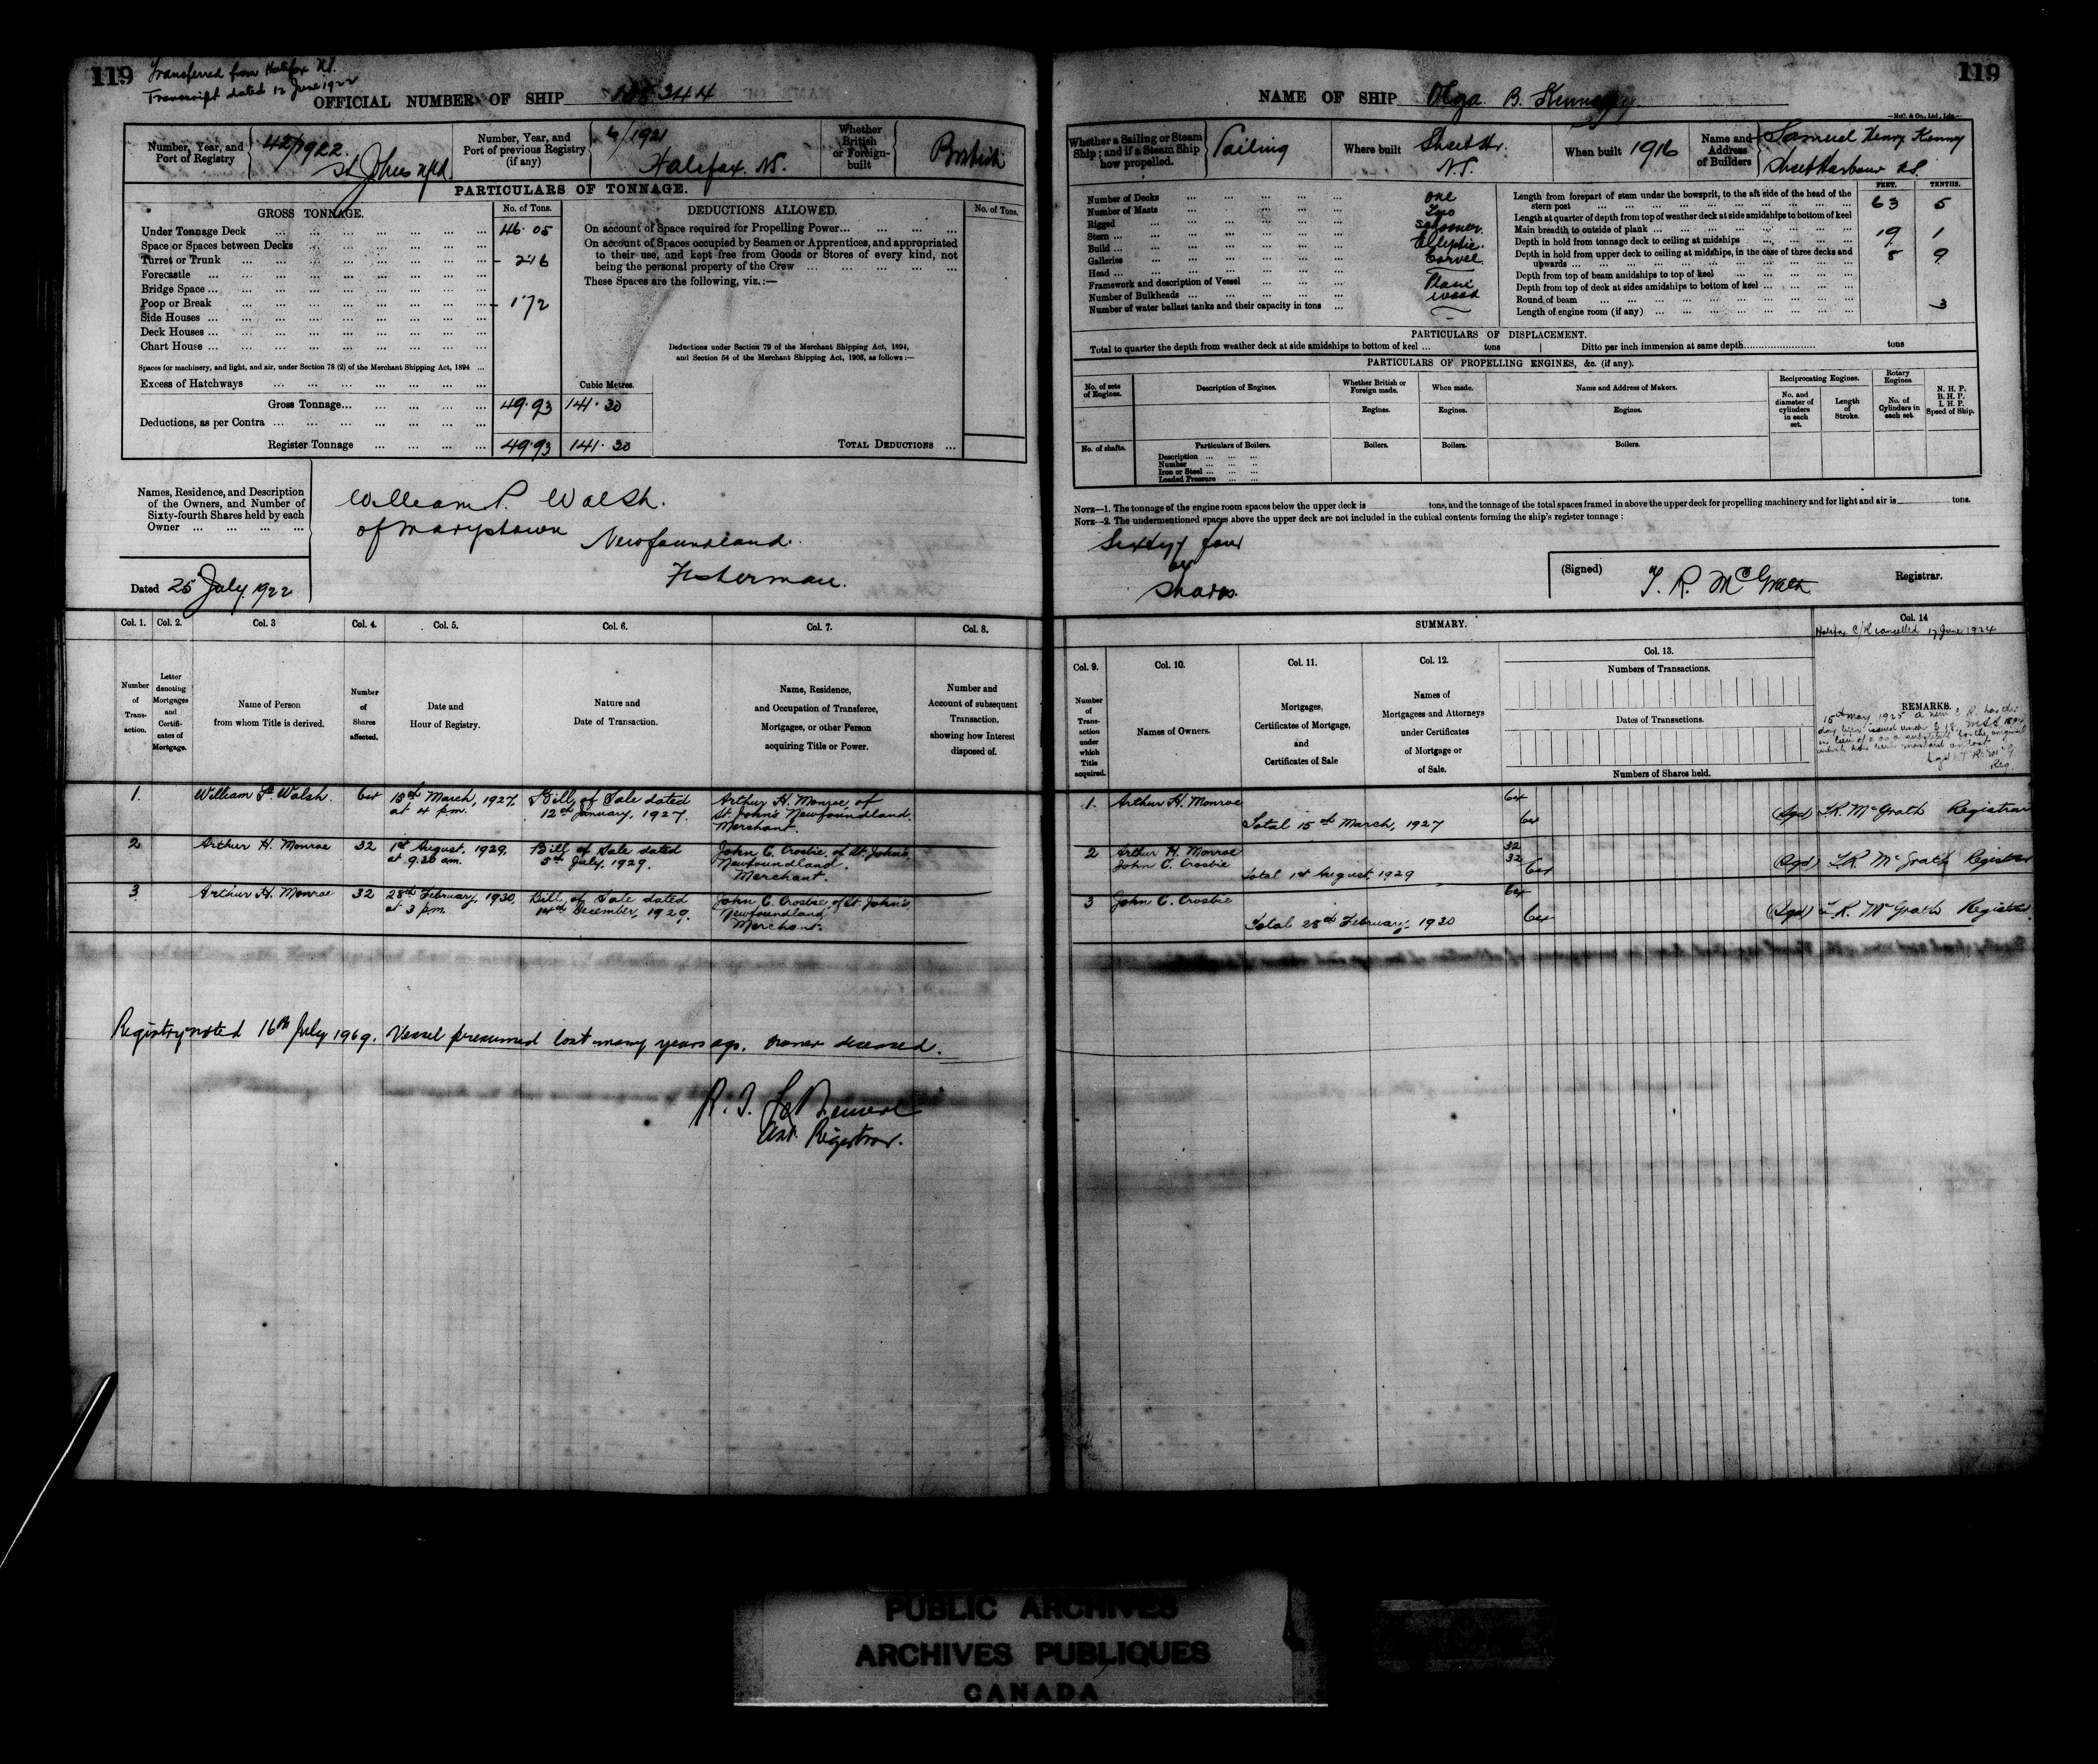 119
Transferred from Halifax N.S.
Transcript dated 12 June 1922
OFFICIAL NUMBER OF SHIP 138.244
Number, Year, and Port of Registry
42/1922.
St Johns Nfld.
Number, Year, and Port of previous Registry (if any)
6/1921
Halifax. N.S.
Whether British or Foreign-built
British
PARTICULARS OF TONNAGE.
GROSS TONNAGE.
No. of Tons.
DEDUCTIONS ALLOWED.
No. of Tons.
Under Tonnage Deck 46.05
Space or Spaces between Decks
Turret or Trunk 2.16
Forecastle
Bridge Space
Poop or Break 1.72
Side Houses
Deck Houses
Chart House
Spaces for machinery, and light, and air, under Section 78 (2) of the Merchant Shipping Act, 1894
Excess of Hatchways
Cubic Metres.
Gross Tonnage 49.93 141.30
Deductions, as per Contra
Register Tonnage 49.93 141.30
On account of Space required for Propelling Power
On account of Spaces occupied by Seamen or Apprentices, and appropriated
to their use, and kept free from Goods or Stores of every kind, not
being the personal property of the Crew
These Spaces are the following, viz.:—
Deductions under Section 79 of the Merchant Shipping Act, 1894,
and Section 54 of the Merchant Shipping Act, 1906, as follows:—
TOTAL DEDUCTIONS
Names, Residence, and Description
of the Owners, and Number of
Sixty-fourth Shares held by each
Owner
William P. Walsh.
of Marystown Newfoundland.
Fisherman.
Dated 25 July 1922
Col. 1. Col. 2. Col. 3 Col. 4. Col. 5. Col. 6. Col. 7. Col. 8.
Number of Transaction.
Letter denoting Mortgages and Certificates of Mortgage.
Name of Person from whom Title is derived.
Number of Shares affected.
Date and Hour of Registry.
Nature and Date of Transaction.
Name, Residence, and Occupation of Transferee, Mortgagee, or other Person acquiring Title or Power.
Number and Account of subsequent Transaction, showing how Interest disposed of.
1. William P. Walsh. 64 15th March, 1927. at 4 p.m. Bill of Sale dated 12th January, 1927. Arthur H. Monroe, of St. John's Newfoundland. Merchant.
2 Arthur H. Monroe 32 1st August, 1929, at 9.30 am. Bill of Sale dated 5th July, 1929. John C. Crosbie, of St. John's, Newfoundland. Merchant.
3 Arthur H. Monroe 32 28th February, 1930 at 3 p.m. Bill of Sale dated 14th December, 1929. John C. Crosbie, of St. John's, Newfoundland, Merchant.
Registry noted 16th July 1969. Vessel presumed lost many years ago. owner deceased.
Asst. Registrar.
119
NAME OF SHIP Olga B. Kenney
Whether a Sailing or Steam Ship; and if a Steam Ship how propelled.
Sailing
Where built
Sheet Hr. N.S.
When built 1916
Name and Address of Builders
Samuel Henry Kenney
Sheet Harbour N.S.
Number of Decks One
Number of Masts Two
Rigged Schooner.
Stern Elliptic.
Build Carvel
Galleries
Head Plain
Framework and description of Vessel wood
Number of Bulkheads
Number of water ballast tanks and their capacity in tons
FEET. TENTHS.
Length from forepart of stem under the bowsprit, to the aft side of the head of the stern post 63 5
Length at quarter of depth from top of weather deck at side amidships to bottom of keel
Main breadth to outside of plank 19 1
Depth in hold from tonnage deck to ceiling at midships 8 9
Depth in hold from upper deck to ceiling at midships, in the case of three decks and upwards
Depth from top of beam amidships to top of keel
Depth from top of deck at sides amidships to bottom of keel
Round of beam 3
Length of engine room (if any)
PARTICULARS OF DISPLACEMENT.
Total to quarter the depth from weather deck at side amidships to bottom of keel ... tons Ditto per inch immersion at same depth tons
PARTICULARS OF PROPELLING ENGINES, &c. (if any).
No. of sets of Engines.
Description of Engines.
Whether British or Foreign made.
When made.
Name and Address of Makers.
Reciprocating Engines.
Rotary Engines.
N. H. P.
B. H. P.
I. H. P.
Speed of Ship.
No. and diameter of cylinders in each set.
Length of Stroke.
No. of Cylinders in each set.
Engines. Engines. Engines.
No. of shafts.
Particulars of Boilers.
Boilers. Boilers. Boilers.
Description
Number
Iron or Steel
Loaded Pressure
NOTE—1. The tonnage of the engine room spaces below the upper deck is tons, and the tonnage of the total spaces framed in above the upper deck for propelling machinery and for light and air is tons.
NOTE—2. The undermentioned spaces above the upper deck are not included in the cubical contents forming the ship's register tonnage:
Sixty four
64
Shares.
(Signed) T. R. McGrath Registrar.
SUMMARY.
Col. 14
Halifax C/R cancelled 17 June 1924
Col. 9. Col. 10. Col. 11. Col. 12. Col. 13.
Number of Transaction under which Title acquired.
Names of Owners.
Mortgages, Certificates of Mortgage, and Certificates of Sale
Names of Mortgagees and Attorneys under Certificates of Mortgage or of Sale.
Numbers of Transactions.
Dates of Transactions.
Numbers of Shares held.
REMARKS.
15th May 1925 a new C.R. has this
day been issued under S 18. MSA 1894
in lieu of & as a substitute for the original
which has been mislaid or lost
Reg.
1. Arthur H. Monroe 64
Total 15th March, 1927 64 (Sgd) T.R. McGrath Registrar
2 Arthur H. Monroe 32
John C. Crosbie 32
Total 1st August 1929 64 (Sgd) T.R. McGrath Registrar
3 John C. Crosbie 64
Total 28th February, 1930 64 (Sgd) T.R. McGrath Registrar.
PUBLIC ARCHIVES
ARCHIVES PUBLIQUES
CANADA